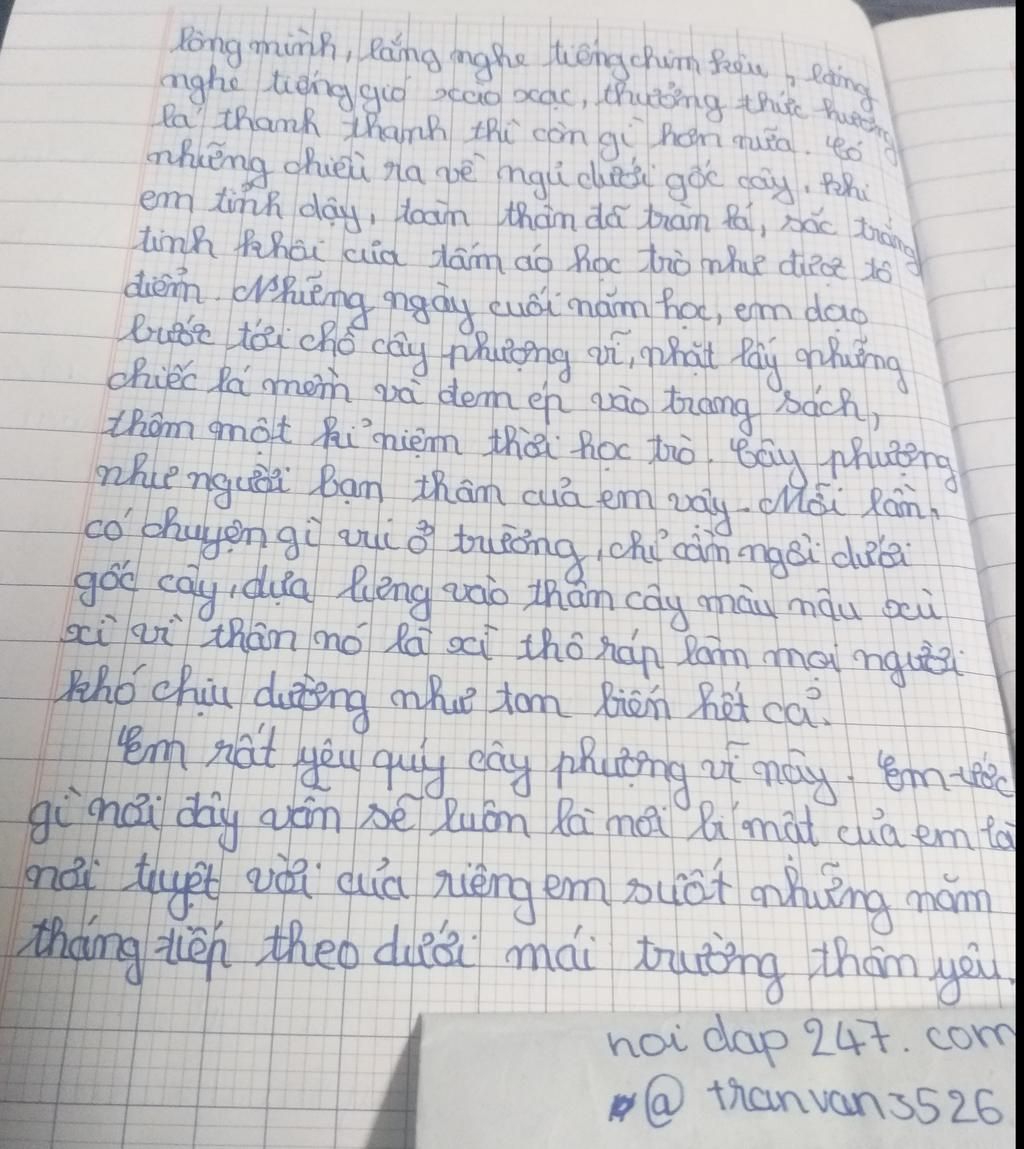 lòng mình, lắng nghe tiếng chim kêu, lắng
nghe tiếng gió xào xạc, thưởng thức hương
lá thanh thanh thì còn gì hơn nữa. Có
những chiều ra về ngủ dưới gốc cây, khi
em tỉnh dậy, toàn thân đã tràn lá, sắc trắng
tinh khôi của tấm áo học trò như được tô
điểm. Những ngày cuối năm học, em dạo
bước tới chỗ cây phượng vĩ, nhặt lấy những
chiếc lá mềm và đem ép vào trang sách,
thêm một kỉ niệm thời học trò. Cây phượng
như người bạn thân của em vậy. Mỗi lần,
có chuyện gì vui ở trường, chỉ cần ngồi dưới
gốc cây, dựa lưng vào thân cây màu nâu xù
xì vì thân nó là xì thô ráp làm mọi người
khó chịu dường như tan biến hết cả.
Em rất yêu quý cây phượng vĩ này. Em ước
gì nơi đây vẫn sẽ luôn là nơi bí mật của em là
nơi tuyệt vời của riêng em suốt những năm
tháng tiếp theo dưới mái trường thân yêu.
hoi dap 247. com
@ tranvan3526